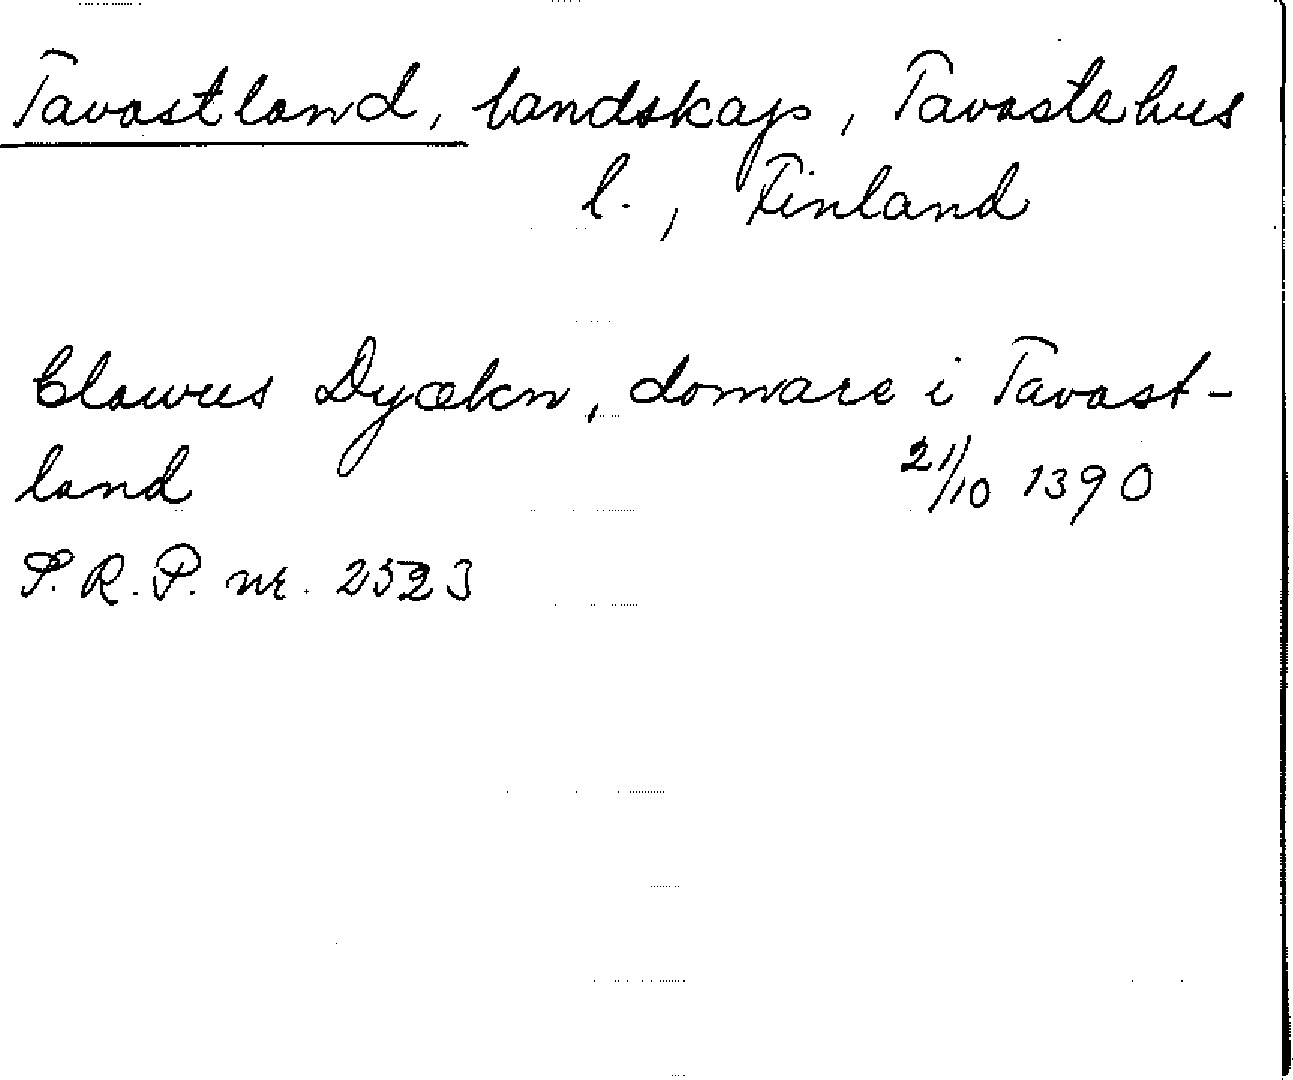 Tavastland, landskap, Tavastehus
l., Finland
Clawus Dyækn, domare i Tavast-
land 21/10 1390
S.R.P. nr. 2523